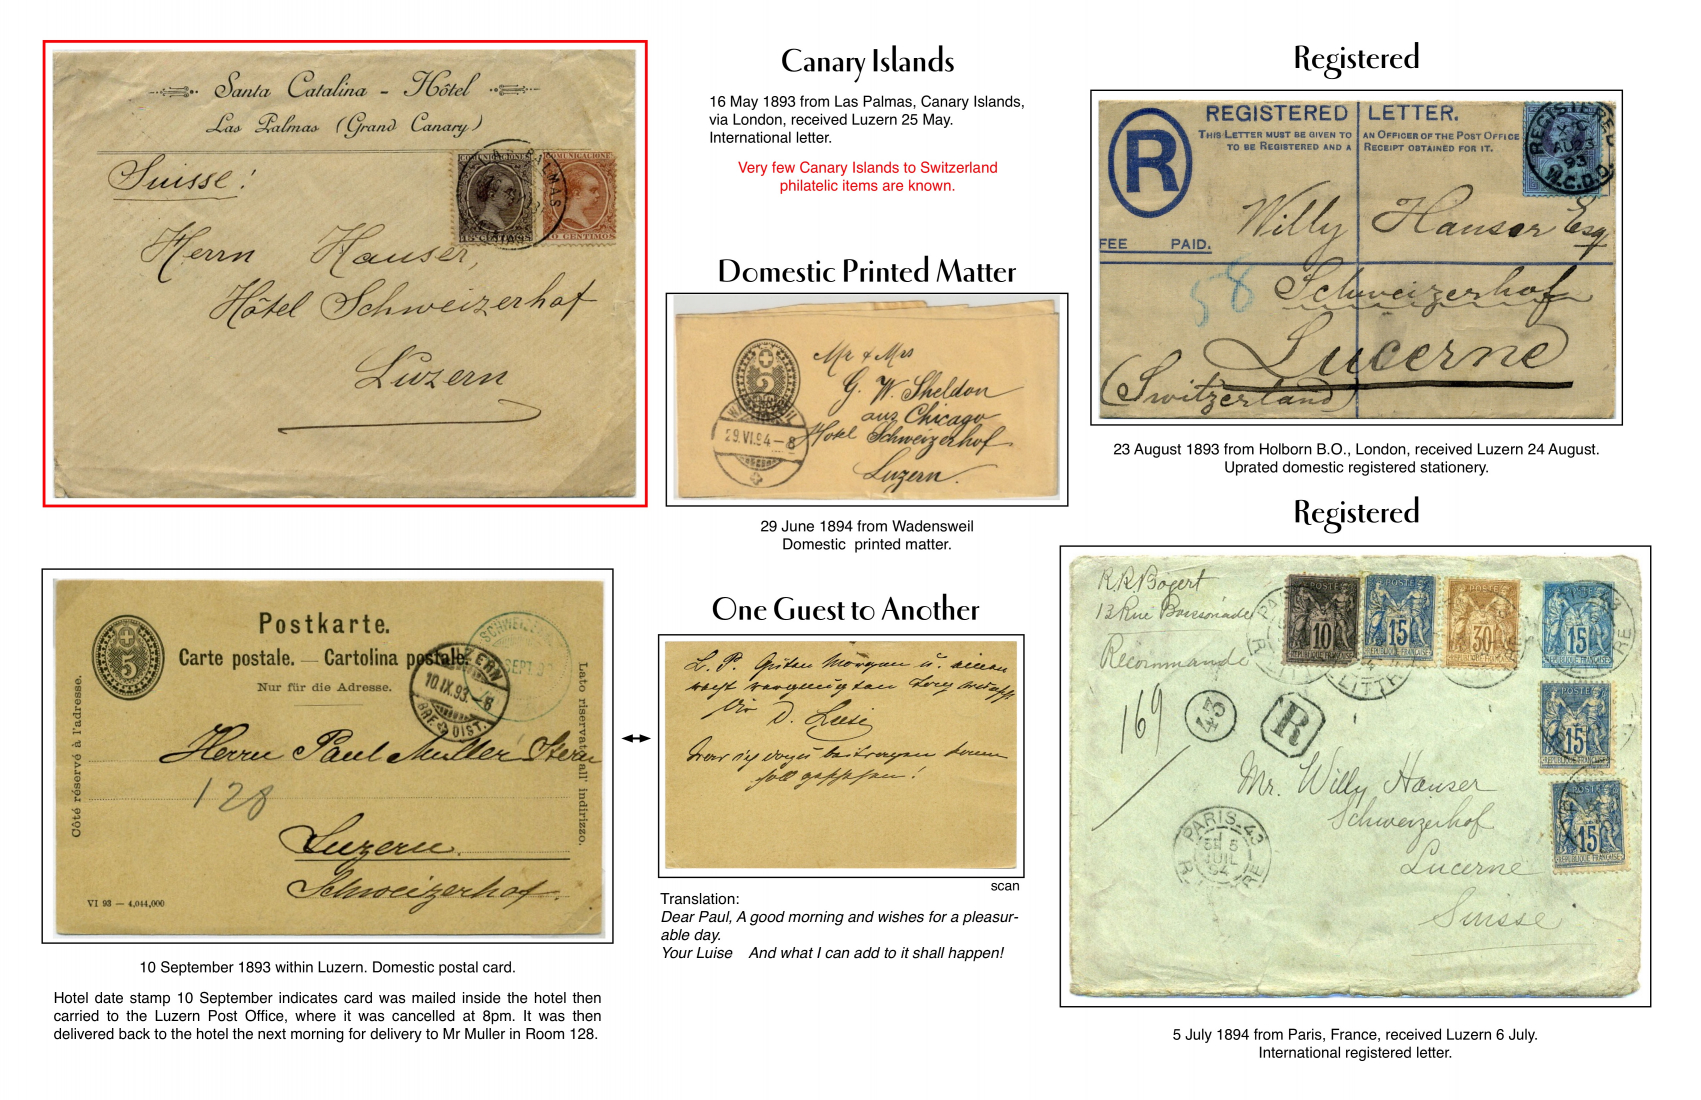 Santa Catalina - Hôtel
Las Palmas (Grand Canary)
Suisse!
COMUNICACIONES
COMUNICACIONES
15 CENTIMOS
10 CENTIMOS
Herrn Hauser,
Hôtel Schweizerhof
Luzern
Canary Islands
16 May 1893 from Las Palmas, Canary Islands,
via London, received Luzern 25 May.
International letter.
Very few Canary Islands to Switzerland
philatelic items are known.
Domestic Printed Matter
2
29.VI.94—8
Mr & Mrs
G. W. Sheldon
aus Chicago
Hotel Schweizerhof
Luzern.
29 June 1894 from Wadensweil
Domestic printed matter.
Registered
REGISTERED LETTER.
THIS LETTER MUST BE GIVEN TO AN OFFICER OF THE POST OFFICE
TO BE REGISTERED AND A RECEIPT OBTAINED FOR IT.
R
REGISTERED
AU 23
93
W.C.D.O.
FEE PAID.
Willy Hauser Esq
58
Schweizerhof
Lucerne
(Switzerland)
23 August 1893 from Holborn B.O., London, received Luzern 24 August.
Uprated domestic registered stationery.
Postkarte.
Carte postale. — Cartolina postale.
Nur für die Adresse.
5
LUZERN
10 IX.93.—8
BRF. DIST.
SEPT. 93
Côté réservé à l'adresse.
Lato riservato all' indirizzo.
Herrn Paul Muller Stern
128
Luzern.
Schweizerhof.
VI 93 — 4,044,000
10 September 1893 within Luzern. Domestic postal card.
Hotel date stamp 10 September indicates card was mailed inside the hotel then
carried to the Luzern Post Office, where it was cancelled at 8pm. It was then
delivered back to the hotel the next morning for delivery to Mr Muller in Room 128.
One Guest to Another
L. P. Guten Morgen u. einen
D. Luise
soll geschehen!
scan
Translation:
Dear Paul, A good morning and wishes for a pleasur-
able day.
Your Luise And what I can add to it shall happen!
Registered
R.R. Bogert
13 Rue Boissonade
Recommandé
POSTE
10
POSTE
15
30
POSTE
15
REPUBLIQUE FRANÇAISE
169
43
R
POSTE
15
POSTE
15
REPUBLIQUE FRANÇAISE
Mr. Willy Hauser
Schweizerhof
Lucerne
Suisse
PARIS-43
JUIL
94
5 July 1894 from Paris, France, received Luzern 6 July.
International registered letter.